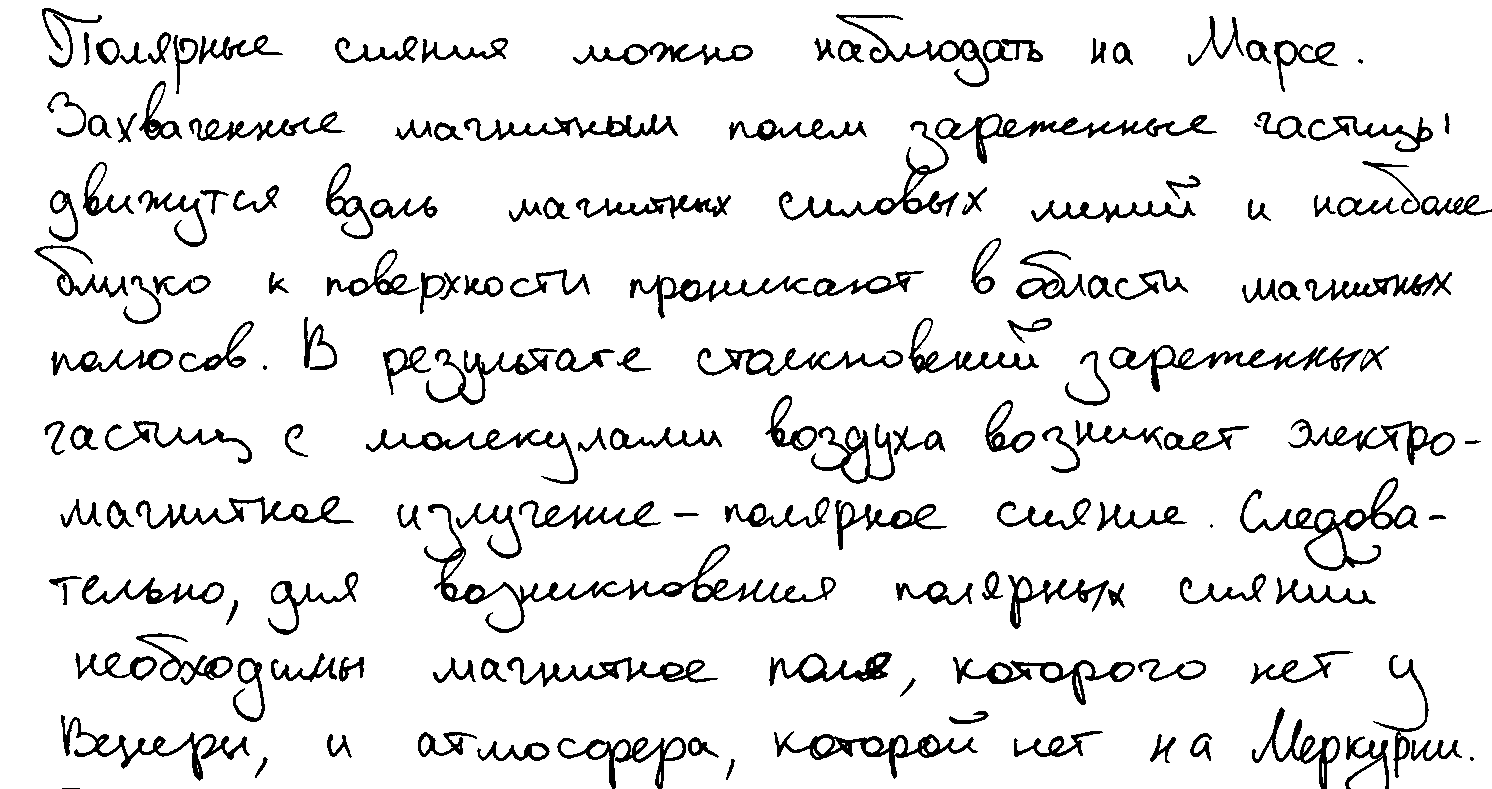 Полярные сияния можно наблюдать на Марсе.
Захваченные магнитным полем зареженные частицы
движутся вдоль магнитных силовых линий и наиболее
близко к поверхности проникают в области магнитных
полюсов. В результате столкновений зареженных
частиц с молекулами воздуха возникает электро-
магнитное излучение – полярное сияние. Следова-
тельно, для возникновения полярных сияний
необходимы магнитное поле, которого нет у
Венеры, и атмосфера, которой нет на Меркурии.